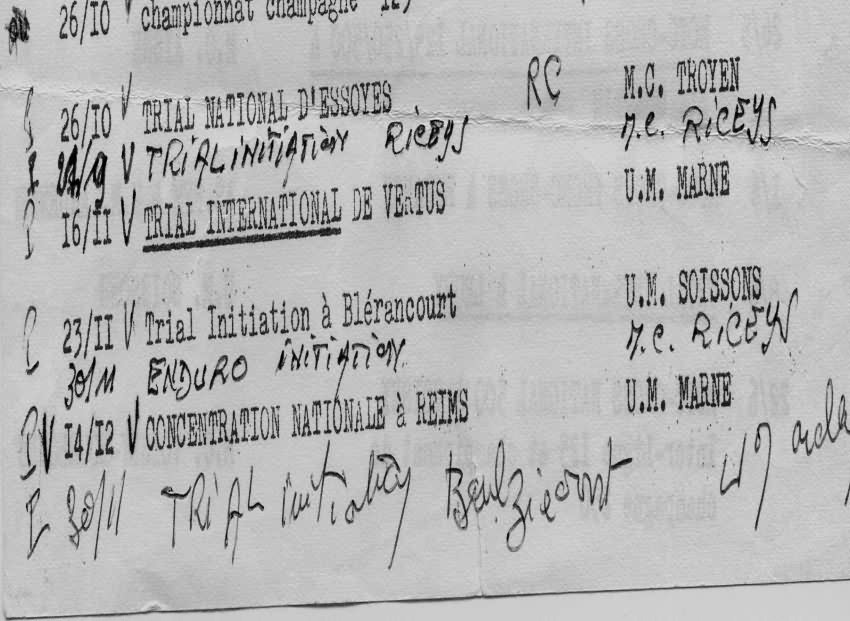 26/10 V championnat champagne 125
26/10 V TRIAL NATIONAL D'ESSOYES RC M.C. TROYEN
V TRIAL INITIATION RICEYS M.C. RICEYS
16/11 V TRIAL INTERNATIONAL DE VERTUS U.M. MARNE
23/11 V Trial Initiation à Blérancourt U.M. SOISSONS
30/11 ENDURO INITIATION M.C. RICEYS
V 14/12 V CONCENTRATION NATIONALE à REIMS U.M. MARNE
30/11 TRIAL initiation